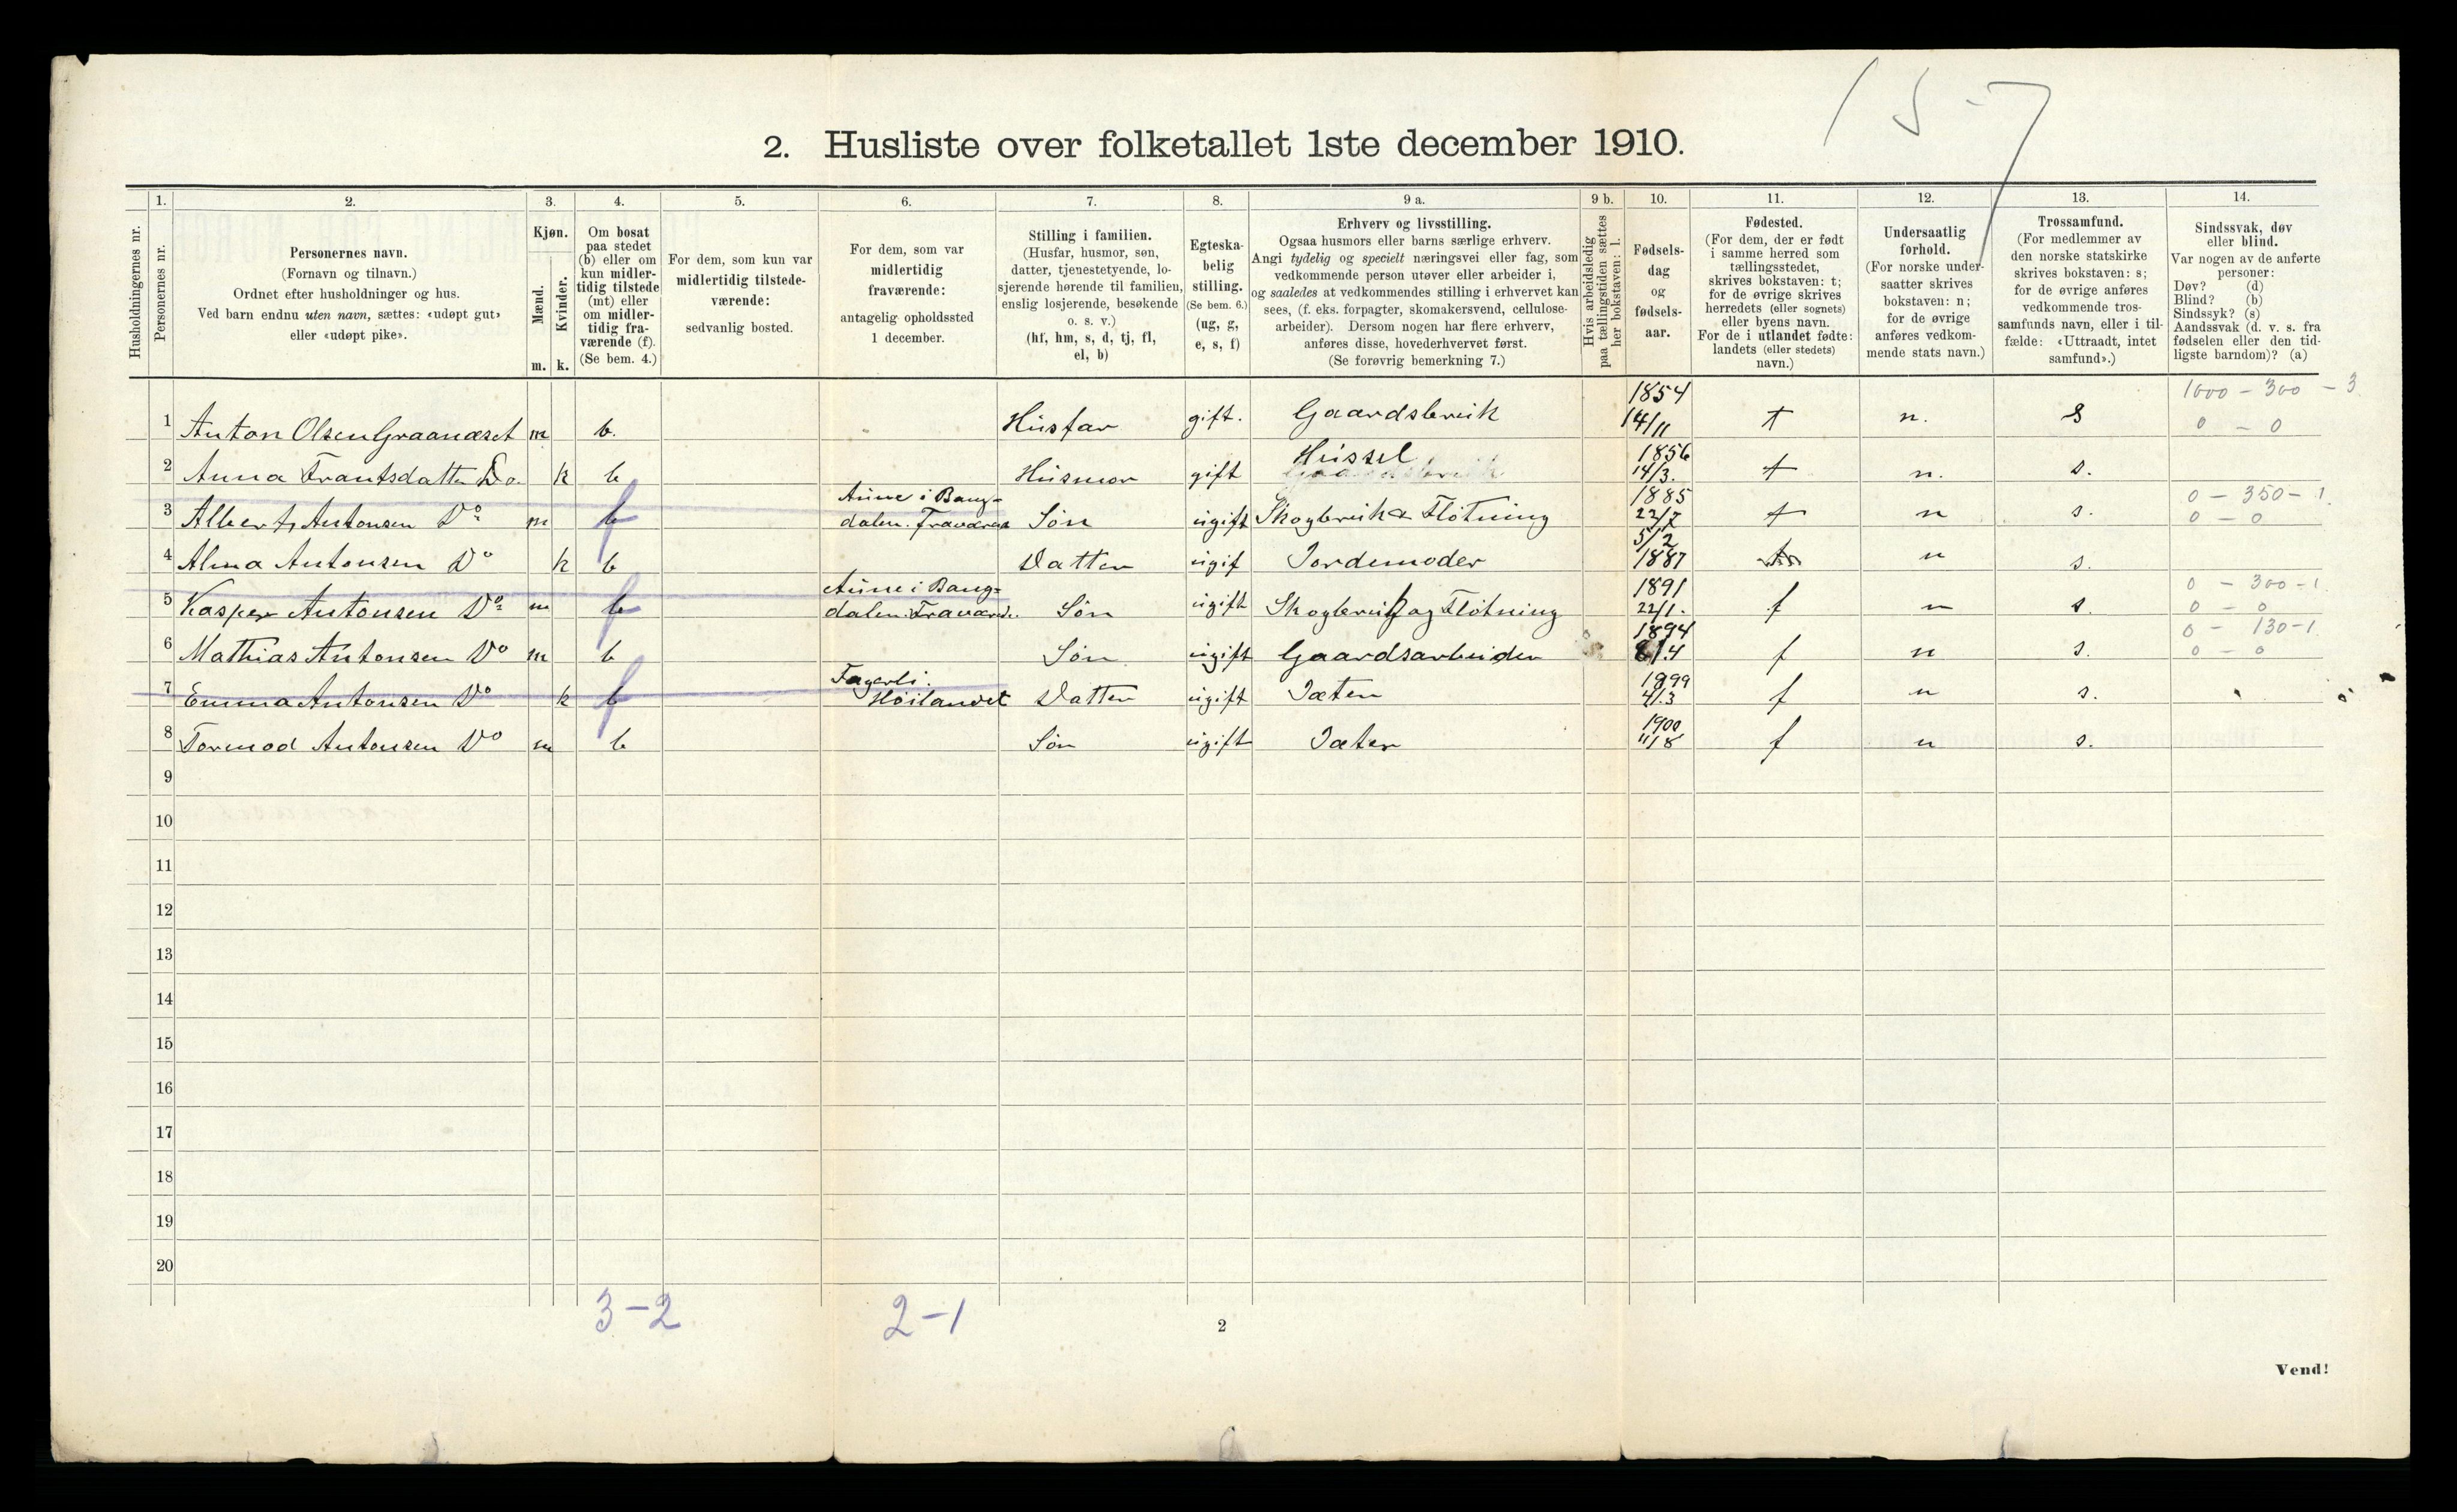 15-7
2. Husliste over folketallet 1ste december 1910.
Husholdningernes nr.
1. Personernes nr.
2. Personernes navn.
(Fornavn og tilnavn.)
Ordnet efter husholdninger og hus.
Ved barn endnu uten navn, sættes: «udøpt gut»
eller «udøpt pike».
3. Kjøn.
Mænd. m.
Kvinder. k.
4. Om bosat
paa stedet
(b) eller om
kun midler-
tidig tilstede
(mt) eller
om midler-
tidig fra-
værende (f).
(Se bem. 4.)
5. For dem, som kun var
midlertidig tilstede-
værende:
sedvanlig bosted.
6. For dem, som var
midlertidig
fraværende:
antagelig opholdssted
1 december.
7. Stilling i familien.
(Husfar, husmor, søn,
datter, tjenestetyende, lo-
sjerende hørende til familien,
enslig losjerende, besøkende
o. s. v.)
(hf, hm, s, d, tj, fl,
el, b)
8. Egteska-
belig
stilling.
(Se bem. 6.)
(ug, g,
e, s, f)
9 a. Erhverv og livsstilling.
Ogsaa husmors eller barns særlige erhverv.
Angi tydelig og specielt næringsvei eller fag, som
vedkommende person utøver eller arbeider i,
og saaledes at vedkommendes stilling i erhvervet kan
sees, (f. eks. forpagter, skomakersvend, cellulose-
arbeider). Dersom nogen har flere erhverv,
anføres disse, hovederhvervet først.
(Se forøvrig bemerkning 7.)
9 b. Hvis arbeidsledig
paa tællingstiden sættes
her bokstaven: l.
10. Fødsels-
dag
og
fødsels-
aar.
11. Fødested.
(For dem, der er født
i samme herred som
tællingsstedet,
skrives bokstaven: t;
for de øvrige skrives
herredets (eller sognets)
eller byens navn.
For de i utlandet fødte:
landets (eller stedets)
navn.)
12. Undersaatlig
forhold.
(For norske under-
saatter skrives
bokstaven: n;
for de øvrige
anføres vedkom-
mende stats navn.)
13. Trossamfund.
(For medlemmer av
den norske statskirke
skrives bokstaven: s;
for de øvrige anføres
vedkommende tros-
samfunds navn, eller i til-
fælde: «Uttraadt, intet
samfund».)
14. Sindssvak, døv
eller blind.
Var nogen av de anførte
personer:
Døv? (d)
Blind? (b)
Sindssyk? (s)
Aandssvak (d. v. s. fra
fødselen eller den tid-
ligste barndom)? (a)
1 Anton Olsen Graanæset m b. Husfar gift. Gaardsbruk 1854 14/11 t n. s 1000 - 300 - 3 0 - 0
2 Anna Frantsdatter Do. k b Husmor gift Hussel 1856 14/3. t n. s.
3 Albert Antonsen Do m f Aune i Bang-
dalen. Fraværende Søn ugift Skogbruk & Fløtning 1885 22/7 t n s. 0 - 350 - 1. 0 - 0
4 Alma Antonsen Do k b Datter ugif Jordemoder 5/2 1887 n s.
5 Kasper Antonsen Do m f Aune i Bang-
dalen. Fraværende. Søn ugift Skogbruk og Fløtning 1891 22/1. f n s. 0 - 300 - 1 0 - 0
6 Mathias Antonsen Do m b Søn ugift Gaardsarbeider 1894 /4 f n s. 0 - 130 - 1 0 - 0
7 Emma Antonsen Do k f Fagerli.
Høilandet Datter ugift Jæter 1899 4/3 f n s.
8 Tormod Antonsen Do m b Søn ugift Jæter 1900 11/8 f n s.
9
10
11
12
13
14
15
16
17
18
19
20
3-2 2-1
2
Vend!